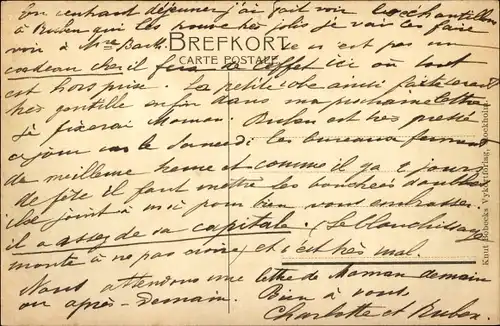 En rentrant déjeuner j'ai fait voir les échantillons
à Ruben qui les trouve très jolis je vais les faire
voir à Mme
BREFKORT
CARTE POSTALE
ce n'est pas un
cadeau cher il fera de l'effet ici où tout
est hors prix. La petite robe ainsi faite sera
très gentille enfin dans ma prochaine lettre
je fixerai Maman. Ruben est très pressé
ce jour car le samedi les bureaux ferment
de meilleure heure et comme il y a 2 jours
de fête il faut mettre les bouchées doubles
se joint à moi pour bien vous embrasser.
il a assez de sa capitale. (le blanchissage
monte à ne pas croire) et c'est très mal.
Nous attendons une lettre de Maman demain
ou après-demain. Bien à vous
Charlotte et Ruben.
Knut Bobecks Vykortförlag, Stockholm.